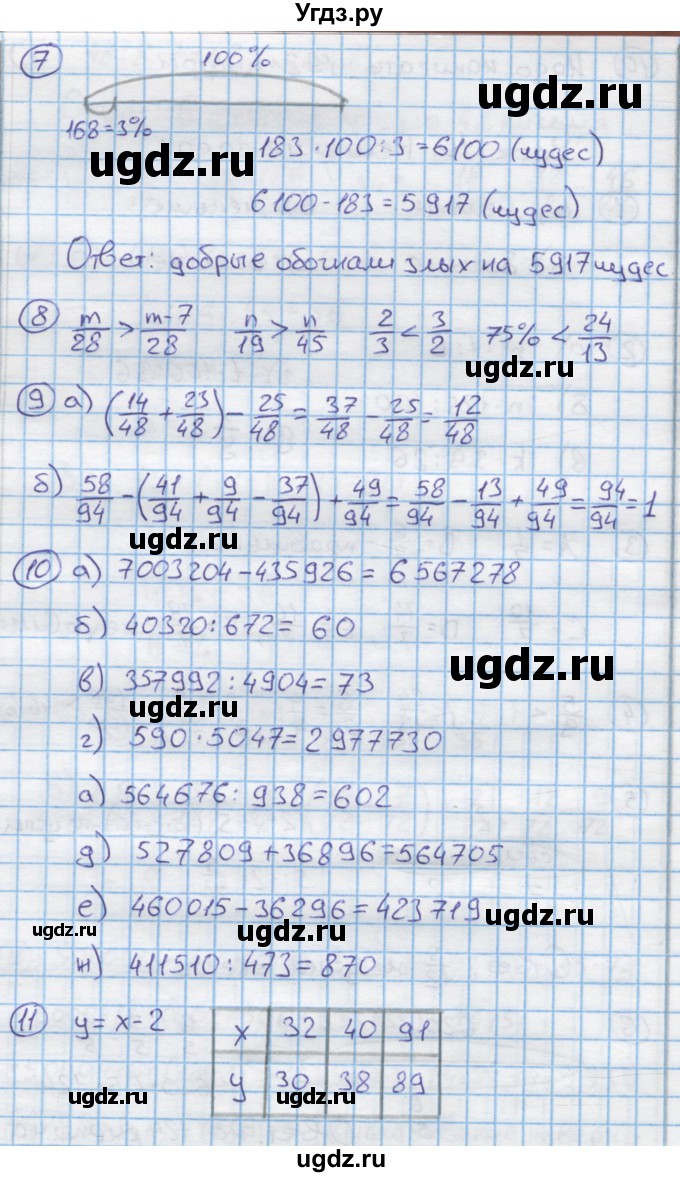 Угдз.ру
7 100%
168=3%
183·100:3=6100 (чудес)
ugdz.ru
6100-183=5917 (чудес)
Ответ: добрые обогнали злых на 5917 чудес.
8 m/28 > m-7/28 n/19 > n/45 2/3 < 3/2 75% < 24/13
ugdz.ru
9 а) (14/48 + 23/48) - 25/48 = 37/48 - 25/48 = 12/48
б) 58/94 - (41/94 + 9/94 - 37/94) + 49/94 = 58/94 - 13/94 + 49/94 = 94/94 = 1
ugdz.ru
10 а) 7003204-435926 = 6567278
б) 40320:672= 60
ugdz.ru
в) 357992:4904=73
ugdz.ru
г) 590·5047=2977730
а) 564676:938=602
д) 527809+36896=564705
е) 460015-36296=423719
ugdz.ru ugdz.ru ugdz.ru
ж) 411510:473=870
11 y=x-2 x 32 40 91
y 30 38 89
ugdz.ru ugdz.ru ugdz.ru
ugdz.ru